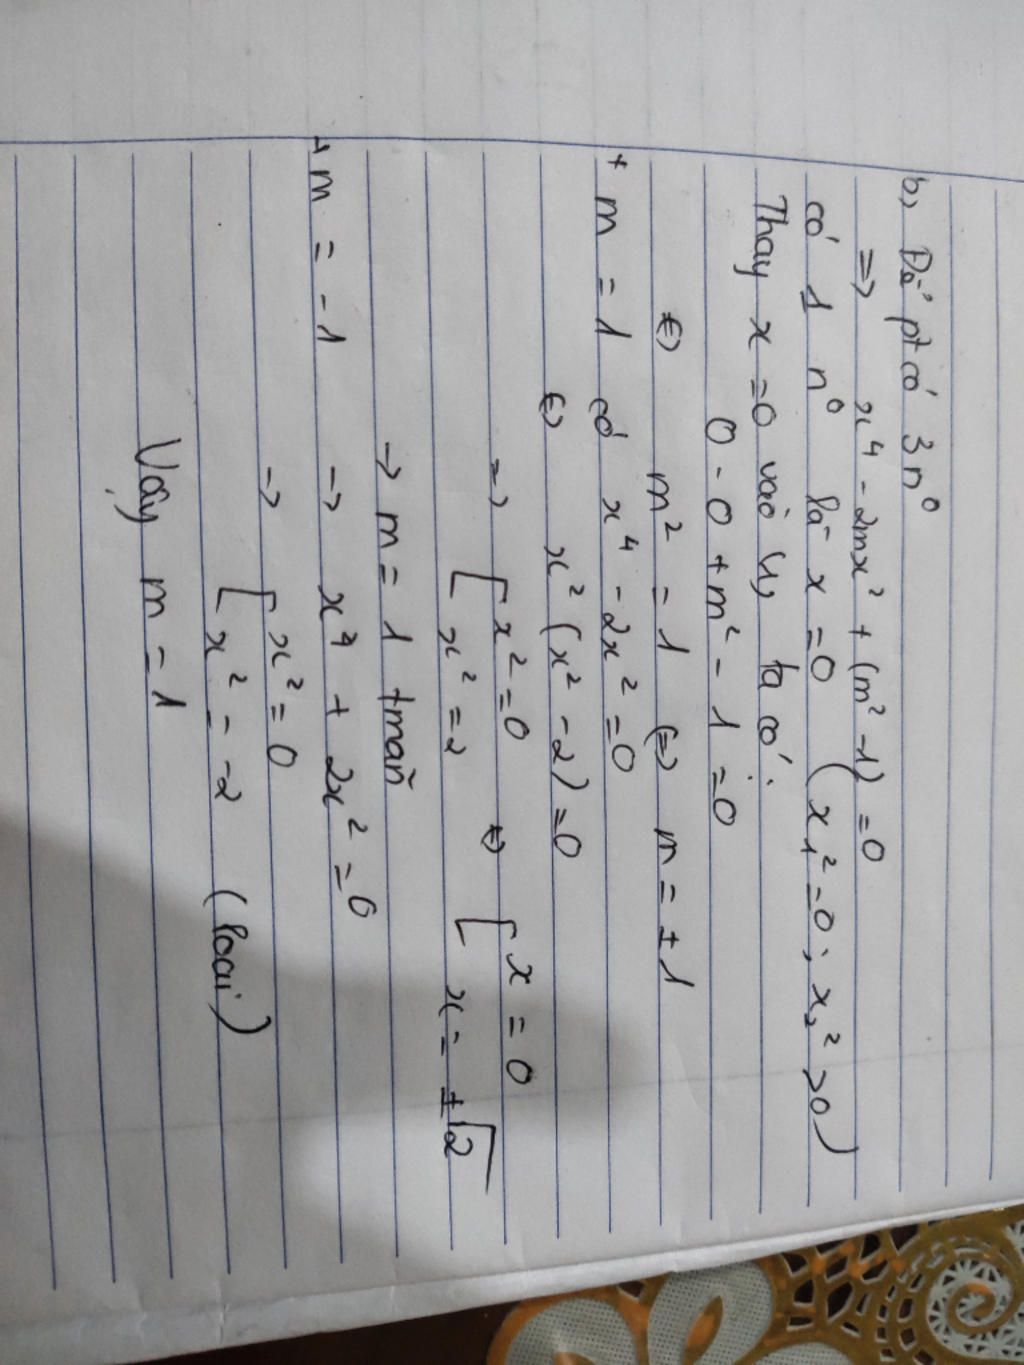 b, Để pt có 3 nº
=> x⁴ - 2mx² + (m² - 1) = 0
có 1 nº là x = 0 ( x₁² = 0 ; x₂² > 0 )
Thay x = 0 vào (1), ta có :
0 - 0 + m² - 1 = 0
<=> m² = 1 <=> m = ± 1
+ m = 1 có x⁴ - 2x² = 0
<=> x² (x² - 2) = 0
=> [ x² = 0 <=> [ x = 0
[ x² = 2 [ x = ± √2
→ m = 1 tmãn
+ m = - 1 → x⁴ + 2x² = 0
→ [ x² = 0
[ x² = -2 (loại)
Vậy m = 1